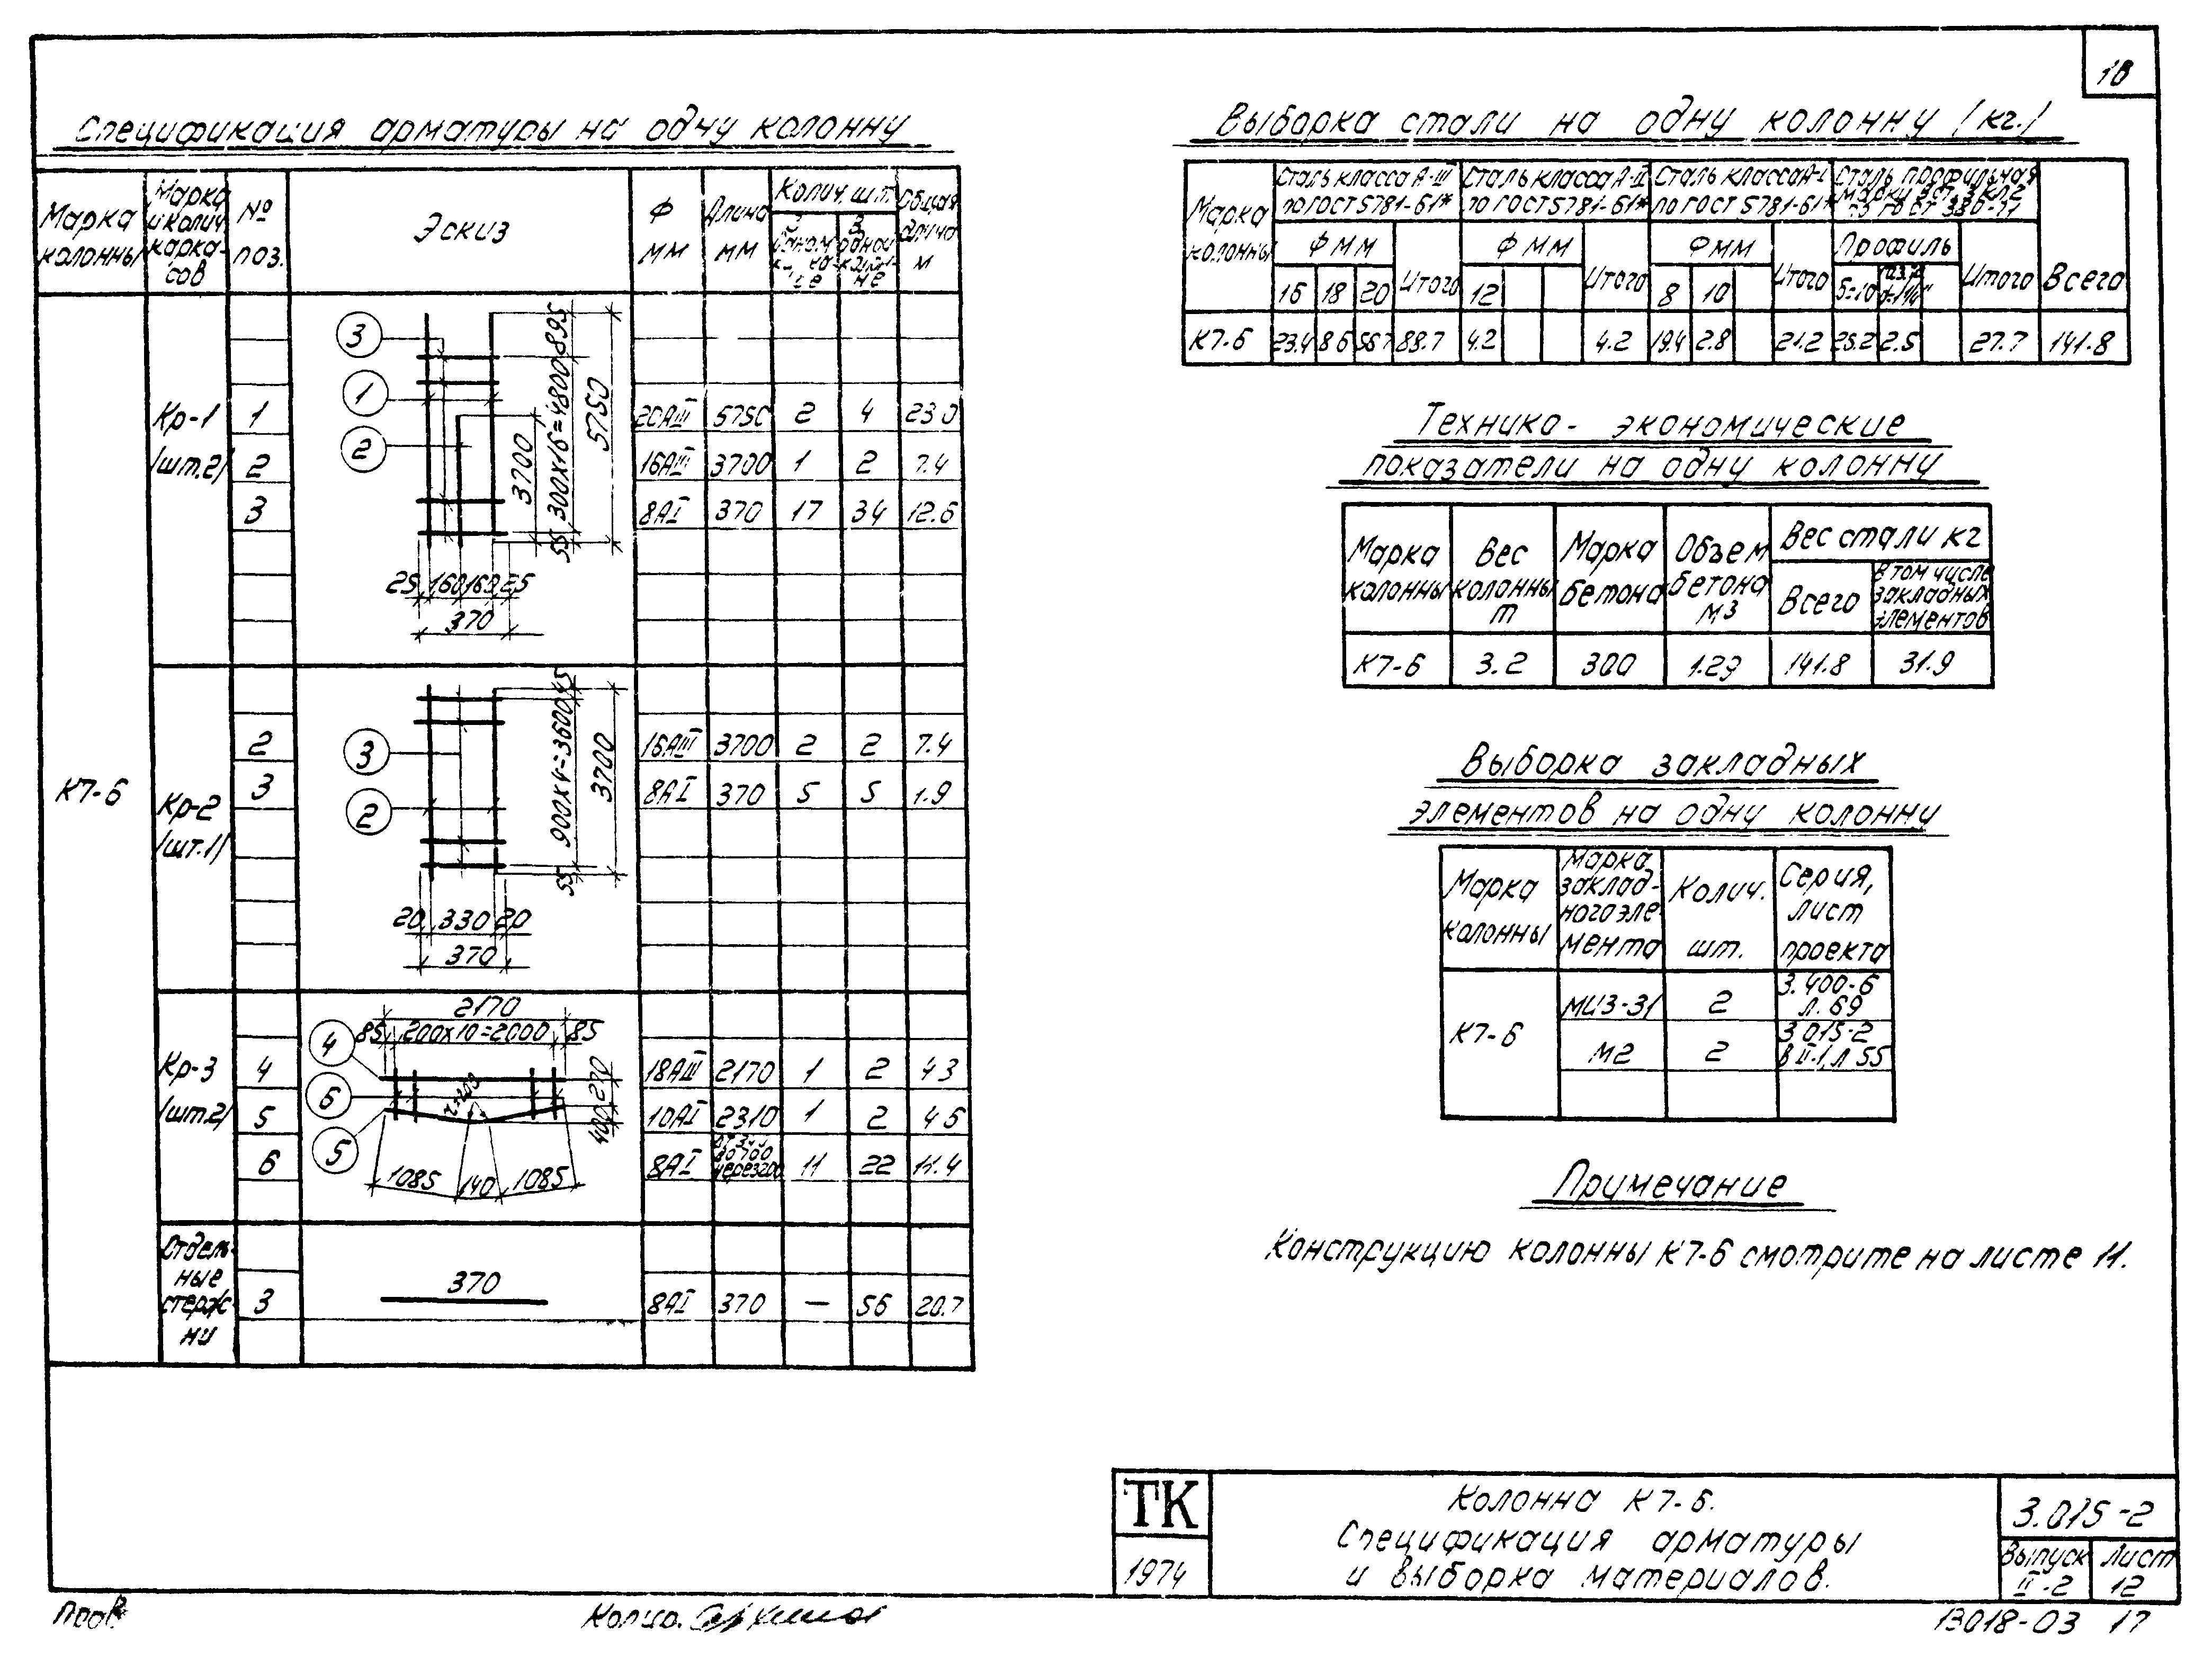 18
Спецификация арматуры на одну колонну
Марка колонны
Марка и колич. каркасов
№ поз.
Эскиз
Ф мм
Длина мм
Колич. шт.
Общая длина м
К7-6
Кр-1 /шт.2/
1 20АIII 5750 2 4 23.0
2 16АIII 3700 1 2 7.4
3 8АI 370 17 34 12.6
3
1
2
3700
55 300х16=4800 895
5750
25 160 160 25
370
Кр-2 /шт.1/
2 16АIII 3700 2 2 7.4
3 8АI 370 5 5 1.9
3
2
55 900х4=3600 45
3700
20 330 20
370
Кр-3 /шт.2/
4 18АIII 2170 1 2 4.3
5 10АI 2310 1 2 4.6
6 8АI через 11 22 11.4
2170
85 200х10=2000 85
4
6
5
270
40
1085 140 1085
Отдельные стержни
3 370 8АI 370 — 56 20.7
Выборка стали на одну колонну (кг.)
Марка колонны
Сталь класса А-III по ГОСТ 5781-61*
Сталь класса А-II по ГОСТ 5781-61*
Сталь класса А-I по ГОСТ 5781-61*
Сталь профильная марки
Ф мм Ф мм Ф мм Профиль
16 18 20 Итого 12 Итого 8 10 Итого δ=10 Итого Всего
К7-6 23.4 8.6 56.7 88.7 4.2 4.2 19.4 2.8 21.2 25.2 2.5 27.7 141.8
Технико-экономические
показатели на одну колонну
Марка колонны
Вес колонны т
Марка бетона
Объем бетона м3
Вес стали кг
Всего
в том числе закладных элементов
К7-6 3.2 300 1.29 141.8 31.9
Выборка закладных
элементов на одну колонну
Марка колонны
Марка закладного элемента
Колич. шт.
Серия, лист проекта
К7-6
МИ3-31 2 3.400-6 л. 69
М2 2 3.015-2 в II-1, л 55
Примечание
Конструкцию колонны К7-6 смотрите на листе 11.
ТК
1974
Колонна К7-6.
Спецификация арматуры
и выборка материалов.
3.015-2
Выпуск II-2
Лист 12
Копир.
13018-03 17